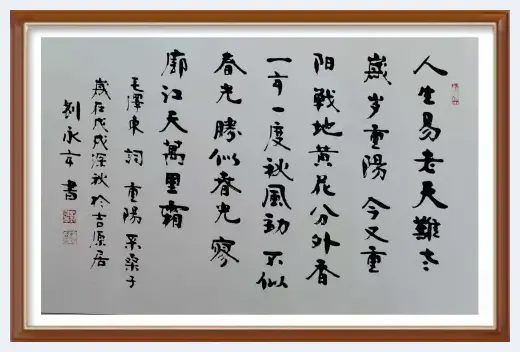 人生易老天難老
歲岁重陽 今又重
阳戰地黄花分外香
一年一度秋風劲 不似
春光勝似春光 寥
廓江天萬里霜
毛澤東 詞 重陽 采桑子
歲在戊戌深秋於吉原居
刘永年書